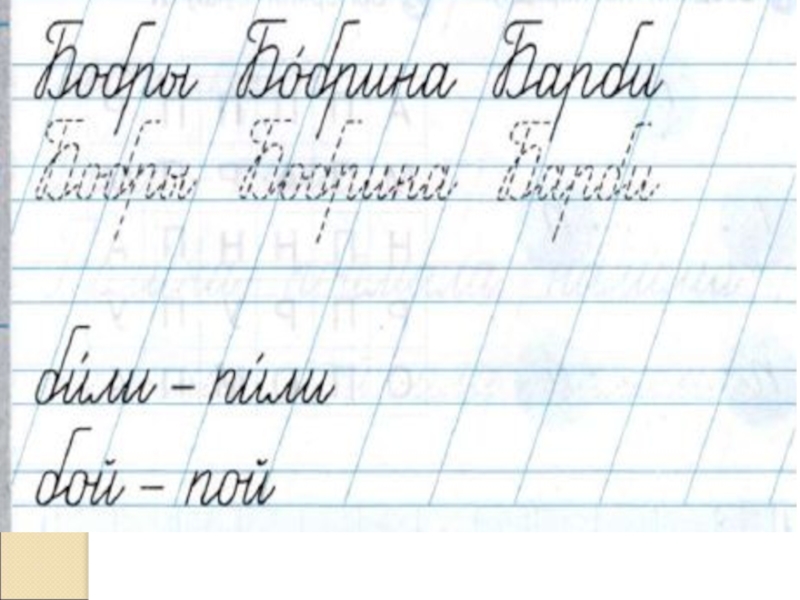 Бобры Бо́брина Барби
Бобры Бобрина Барби
би́ли – пи́ли
бой – пой